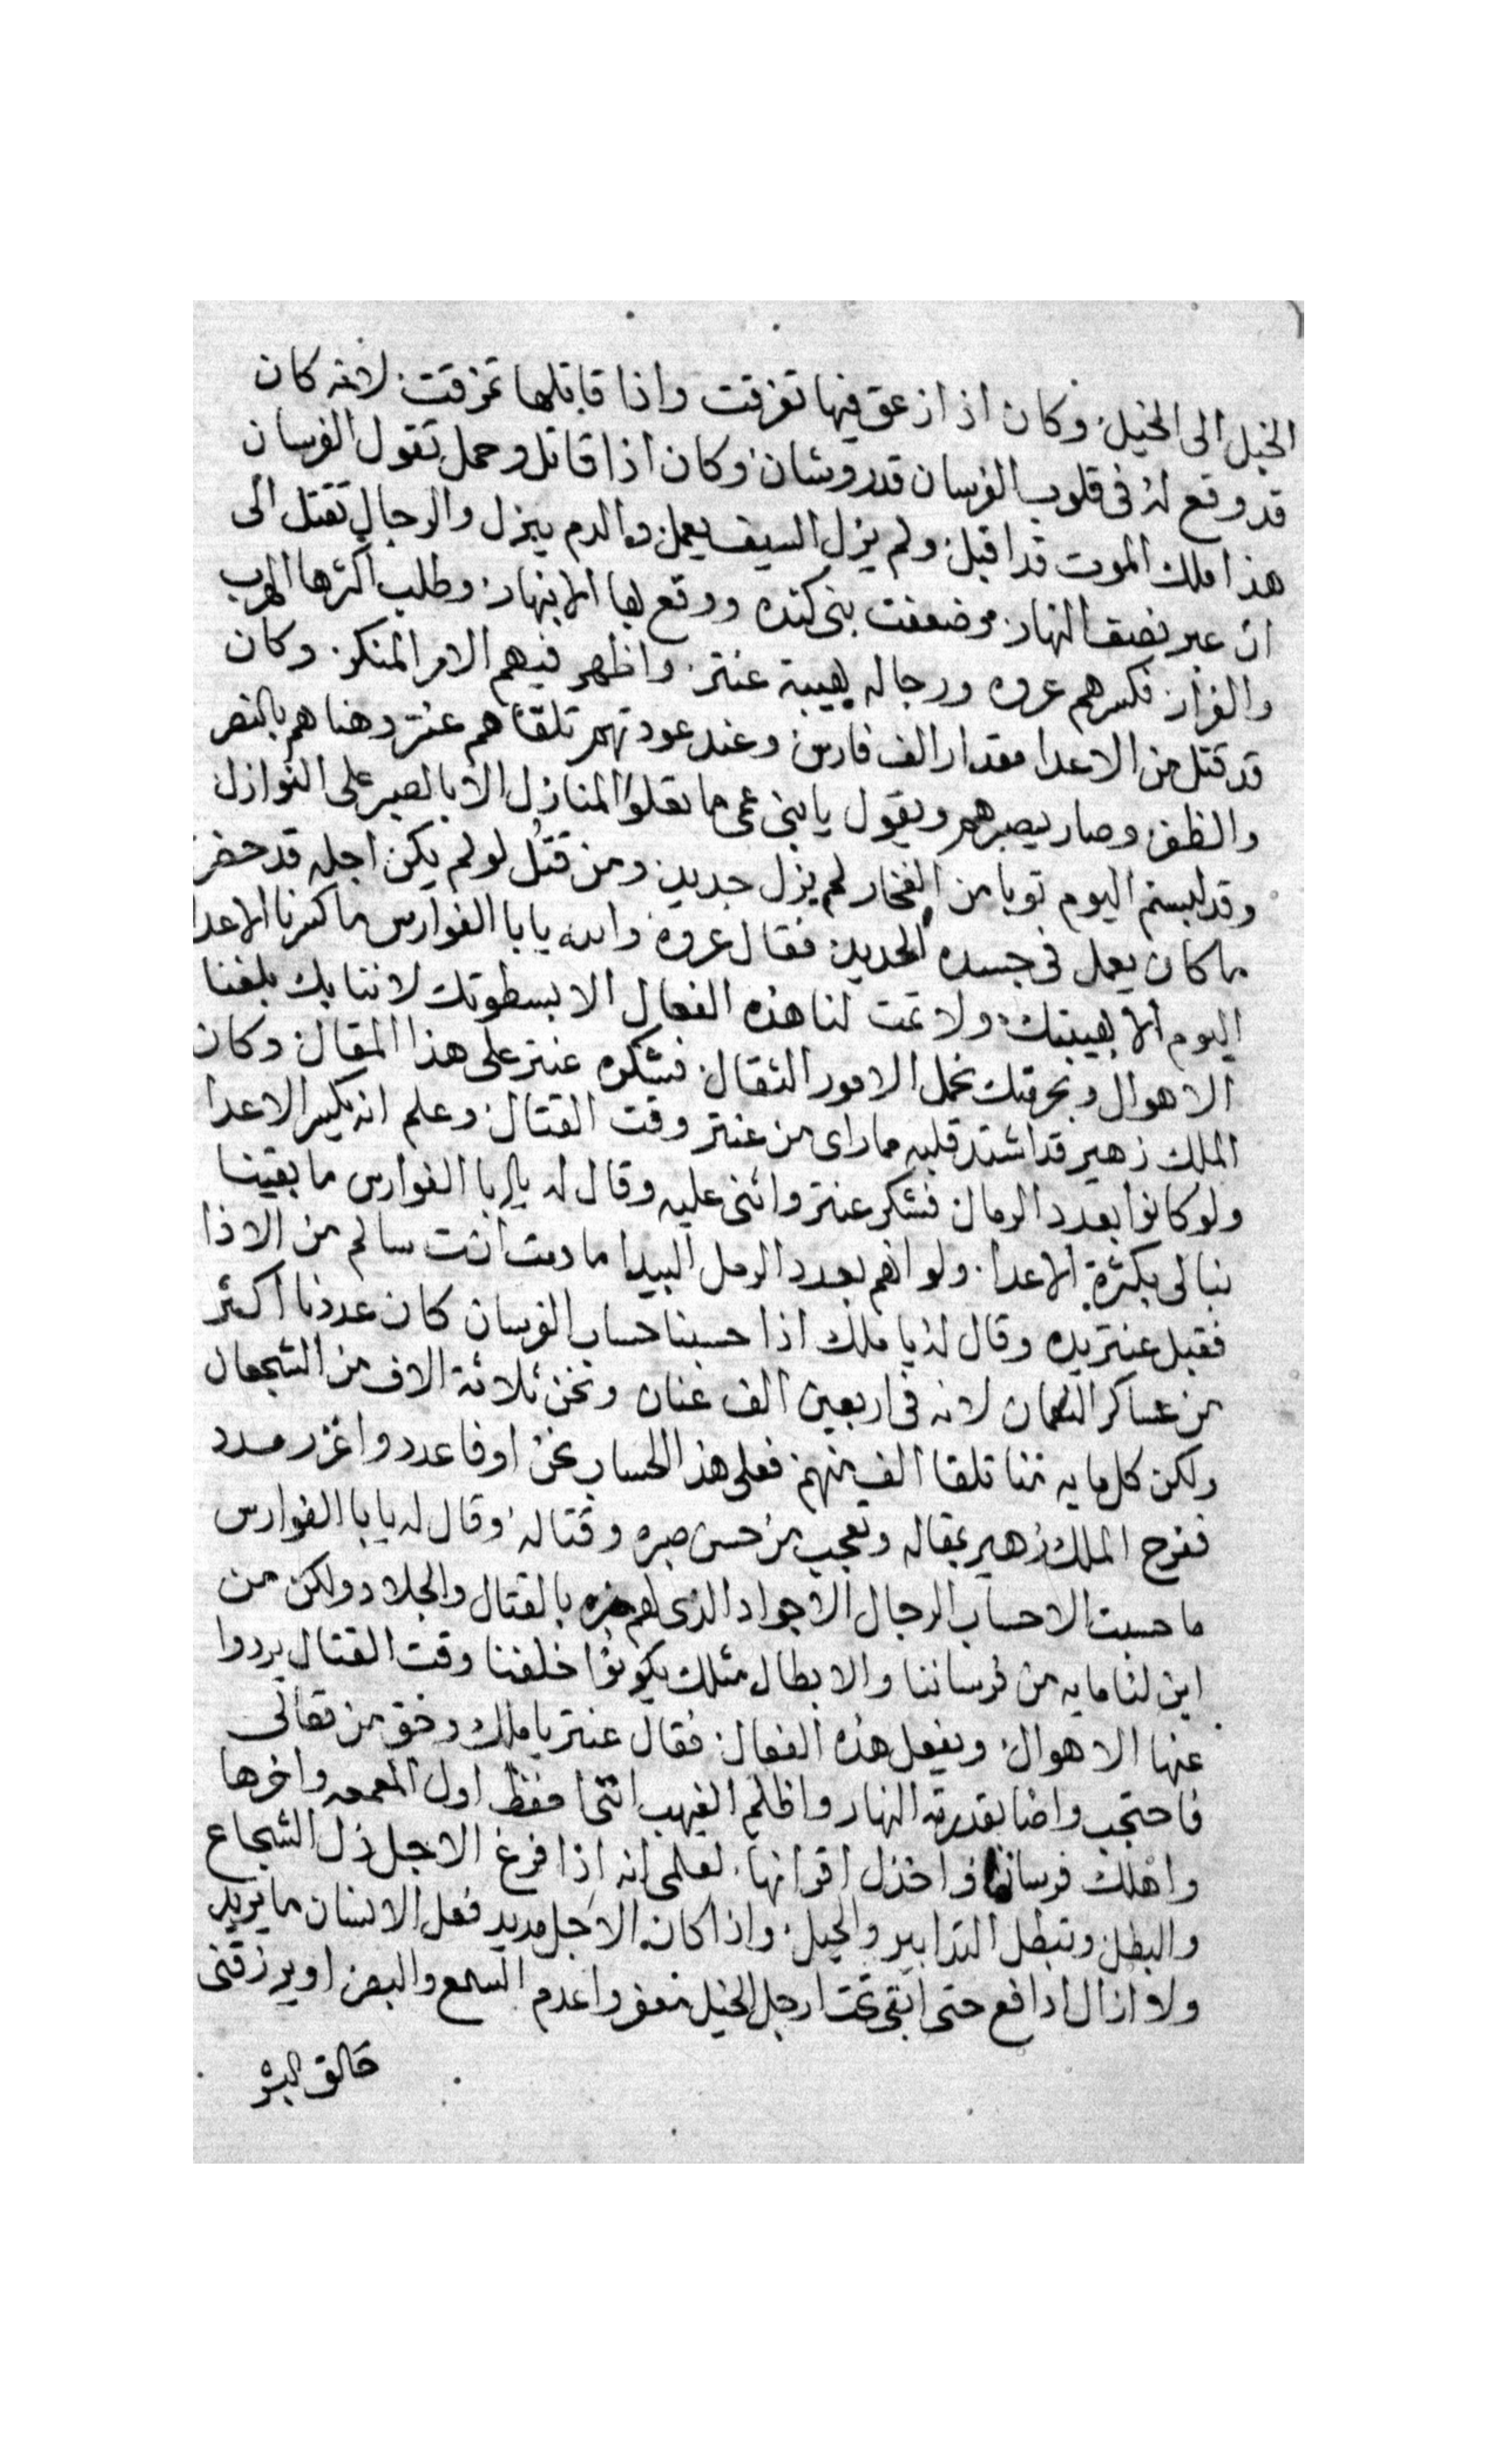 الخيل الى الخيل وكان اذا زعق فيها تفرقت واذا قاتلها تمزقت لانه كان
قد وقع له فى قلوب الفرسان قدر وشان وكان اذا قاتل وحمل تقول الفرسان
هذا ملك الموت قد اقبل ولم يزل السيف يعمل والدم يبزل والرجال تقتل الى
ان عبر نصف النهار وضعفت بنى كنده ووقع بها الانبهار وطلب اكثرها الهرب
والفرار فكسرهم عروه ورجاله بهيبة عنتر واظهر فيهم الامر المنكر وكان
قد قتل من الاعدا مقدار الف فارس وعند عودتهم تلقاهم عنتر وهناهم بالنصر
والظفر وصار يصبرهم ويقول يا بنى عمى ما تعلوا المنازل الا بالصبر على النوازل
وقد لبستم اليوم توبا من الفخار لم يزل جديد ومن قتل لو لم يكن اجله قد حضر
ما كان يعمل فى جسده الحديد فقال عروة والله يابا الفوارس ما كسرنا الاعدا
اليوم الا بهيبتك ولا تمت لنا هذه الفعال الا بسطوتك لاننا بك بلغنا
الاهوال وبحرمتك نحمل الامور الثقال فشكره عنتر على هذا المقال وكان
الملك زهير قد اشتد قلبه مما راى من عنتر وقت القتال وعلم انه يكسر الاعدا
ولو كانوا بعدد الرمال فشكر عنتر واثنى عليه وقال له يابا الفوارس ما بقينا
نبالى بكثرة الاعدا ولو انهم بعدد الرمل البيدا ما دمت انت سالم من الاذا
فقبل عنتر يده وقال له يا ملك اذا حسبنا حساب الفرسان كان عددنا اكثر
من عساكر النعمان لانه فى اربعين الف عنان ونحن ثلاثة الاف من الشجعان
ولكن كل مايه مننا تلقا الف منهم فعلى هذا الحساب نحن اوفا عدد واغزر مدد
ففرح الملك زهير بمقاله وتعجب من حسن صبره وقتاله وقال له يابا الفوارس
ما حسبت الا حساب الرجال الاجواد الذى لهم خبره بالقتال والجلاد ولكن من
اين لنا مايه من فرساننا والابطال مثلك يكونوا خلفنا وقت القتال يردوا
عنها الاهوال ويفعل هذه الفعال فقال عنتر يا ملك وحق من تعالى
فاحتجب واضا بقدرته النهار واظلم الغيهب انحا احفظ اول المعمعه واخرها
واهلك فرسانها واخذل اقرانها لعلمى انه اذا فرغ الاجل ذل الشجاع
والبطل وتبطل التدابير والحيل واذا كان الاجل مديد فعل الانسان ما يريد
ولا ازال ادافع حتى ابقى تحت ارجل الخيل معفر واعدم السمع والبصر او يرزقنى
خالق البشر